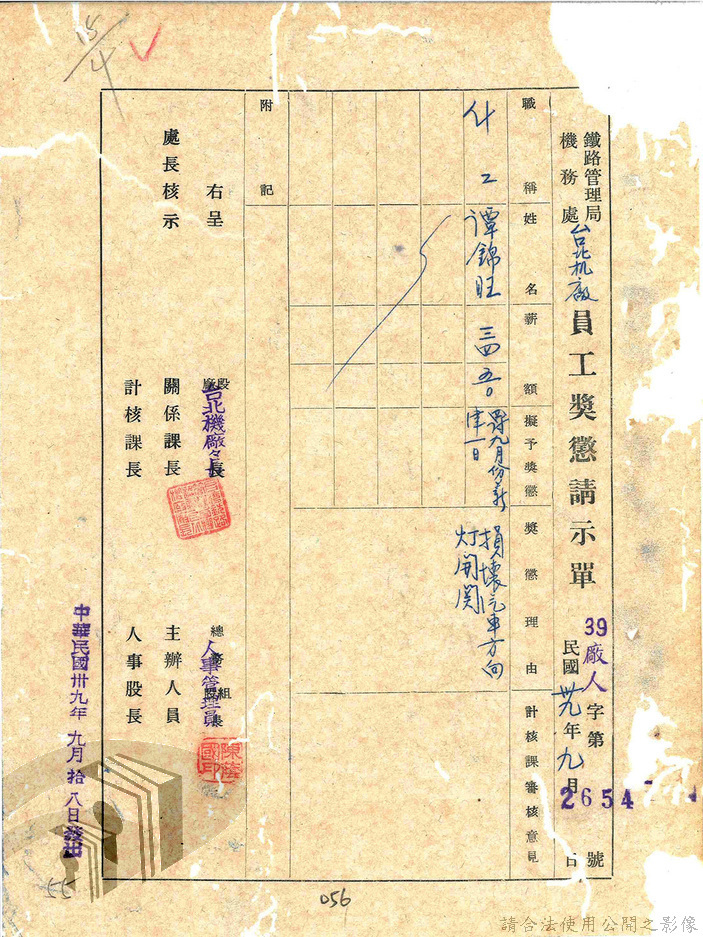 15/4
鐵路管理局
機務處
台北机廠
員工獎懲請示單
39廠人字第2654號
民國卅九年九月 日
職稱
姓名
薪額
擬予獎懲
獎懲理由
計核課審核意見
什工
譚錦旺
三四五〇
罰九月份薪
津一日
損壞汽車方向
灯開関
附記
右呈
處長核示
台北機廠廠長
關係課長
計核課長
人事管理員
主辦人員
人事股長
中華民國卅九年九月拾八日發出
55
056
請合法使用公開之影像